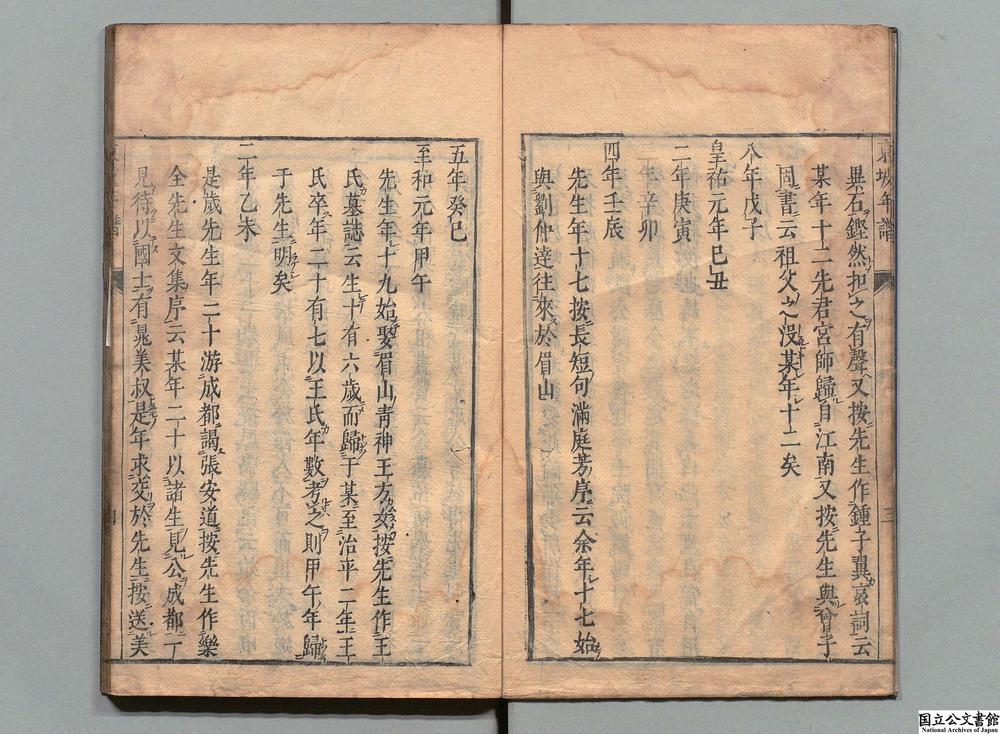 異石鏗然扣之有聲又按先生作鍾子翼哀詞云
某年十二先君宮師歸自江南又按先生與曾子
固書云祖父之沒某年十二矣
八年戊子
皇祐元年己丑
二年庚寅
三年辛卯
四年壬辰
先生年十七按長短句滿庭芳序云余年十七始
與劉仲達往來於眉山
五年癸巳
至和元年甲午
先生年十九始娶眉山靑神王方女按先生作王
氏墓誌云生十有六歲而歸于某至治平二年王
氏卒年二十有七以王氏年數考之則甲午年歸
于先生明矣
二年乙未
是歲先生年二十游成都謁張安道按先生作樂
全先生文集序云某年二十以諸生見公成都公一
見待以國士有晁美叔是年求交於先生按送美
東坡年譜
三
四
国立公文書館
National Archives of Japan